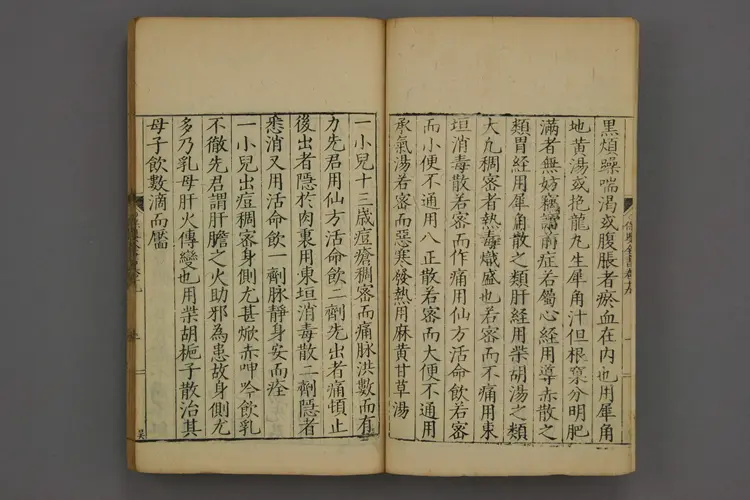 黒煩躁喘渴或腹脹者瘀血在内也用犀角
地黄湯或抱龍丸生犀角汁但根窠分明肥
滿者無妨竊謂前症若屬心經用導赤散之
類胃經用犀角散之類肝經用柴胡湯之類
大凡稠密者熱毒熾盛也若密而不痛用東
垣消毒散若密而作痛用仙方活命飲若密
而小便不通用八正散若密而大便不通用
承氣湯若密而惡寒發熱用麻黄甘草湯
一小兒十三歲痘瘡稠密而痛脉洪數而有
力先君用仙方活命飲二劑先出者痛頓止
後出者隱於肉裏用東垣消毒散二劑隱者
悉消又用活命飲一劑脉靜身安而痊
一小兒出痘稠密身側尤甚焮赤呻吟飲乳
不徹先君謂肝膽之火助邪為患故身側尤
多乃乳母肝火傳變也用柴胡梔子散治其
母子飲數滴而靨